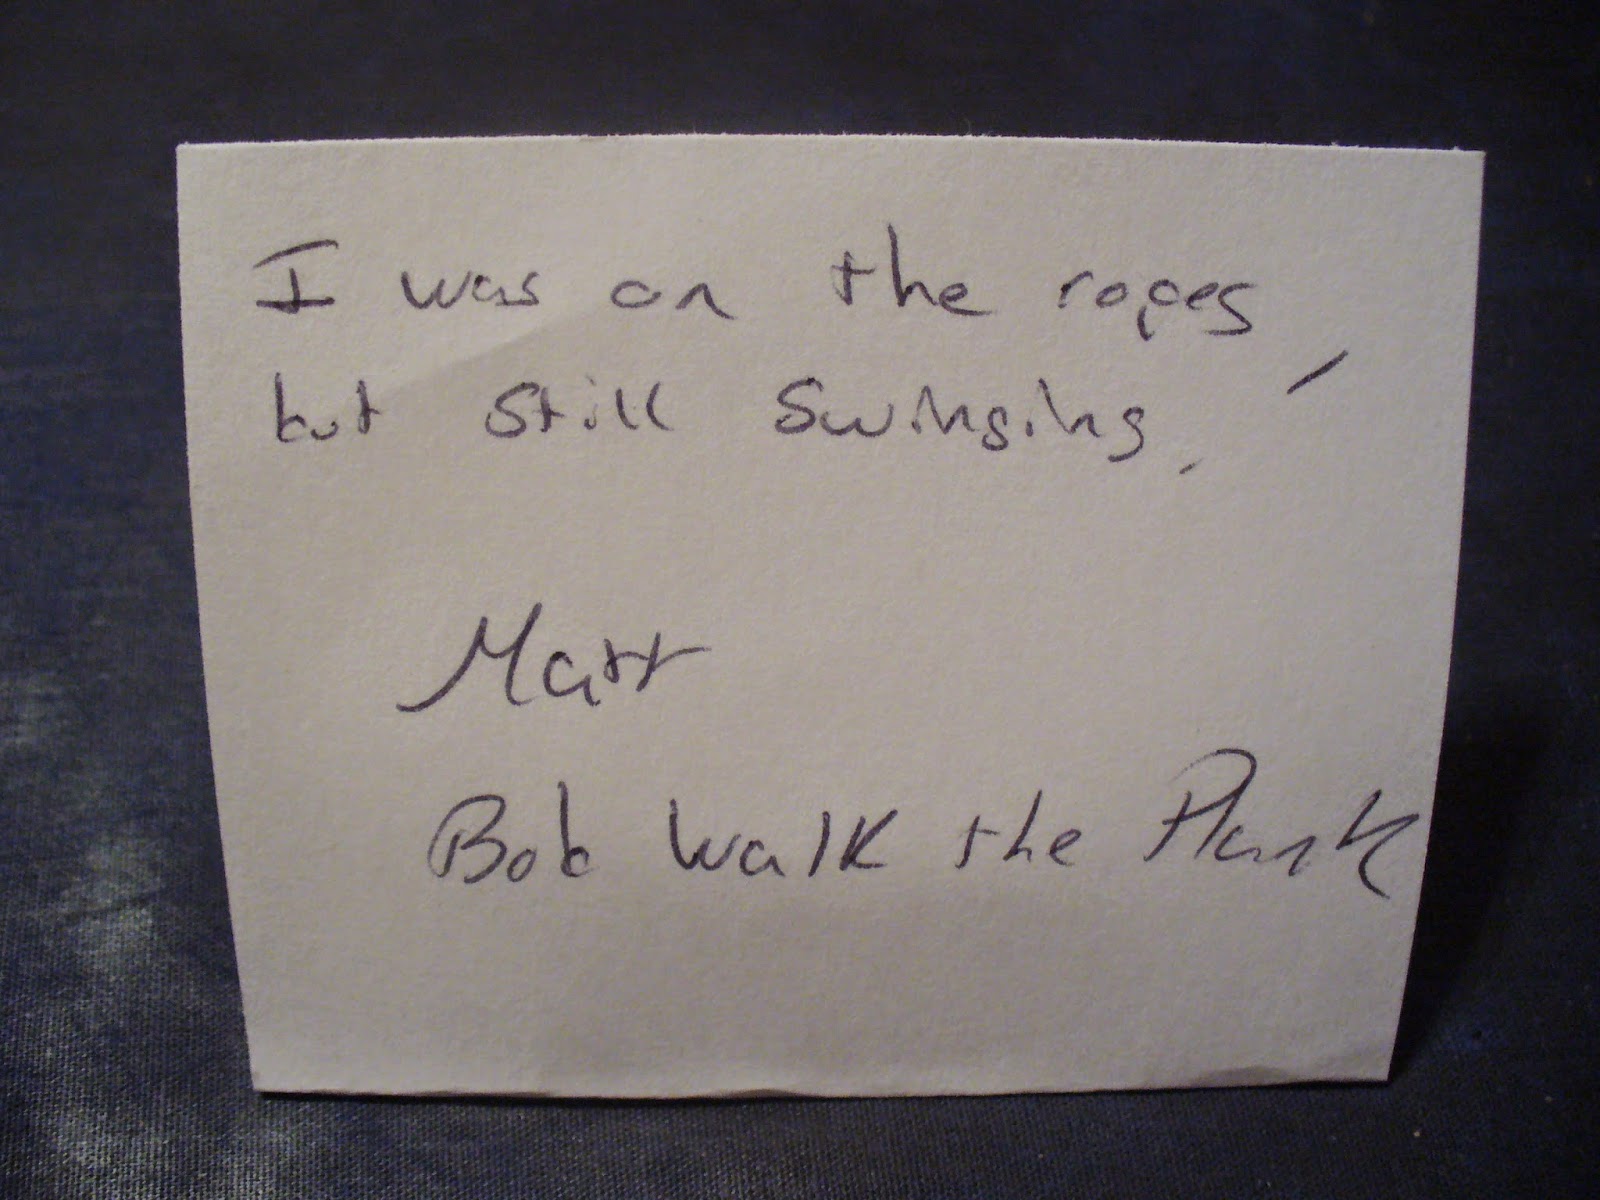 I was on the ropes,
but still swinging.
Matt
Bob Walk the Plank